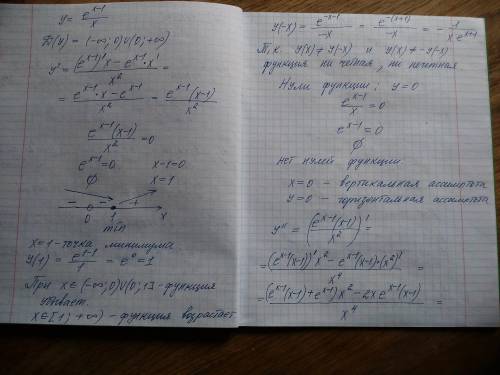 y = e^(x-1)/x
D(y) = (-∞; 0)∪(0; +∞)
y' = ((e^(x-1))' x - e^(x-1)·x')/x² =
= (e^(x-1)·x - e^(x-1))/x² = e^(x-1)(x-1)/x²
e^(x-1)(x-1)/x² = 0
e^(x-1) = 0 x-1=0
∅ x=1
- - +
0 1 x
min
x=1 - точка минимума
y(1) = e^(1-1)/1 = e⁰ = 1
При x∈(-∞; 0)∪(0; 1] - функция
убывает.
x∈[1; +∞) - функция возрастает
y(-x) = e^(-x-1)/(-x) = e^(-(x+1))/(-x) = - 1/(x e^(x+1))
Т.к. y(x)≠y(-x) и y(x)≠-y(-x)
функция ни четная, ни нечетная
Нули функции: y=0
e^(x-1)/x = 0
e^(x-1) = 0
∅
Нет нулей функции.
x=0 - вертикальная ассимптота
y=0 - горизонтальная ассимптота
y'' = (e^(x-1)(x-1)/x²)' =
= ((e^(x-1)(x-1))' x² - e^(x-1)(x-1)·(x²)')/x⁴ =
= ((e^(x-1)(x-1) + e^(x-1)) x² - 2x e^(x-1)(x-1))/x⁴ =